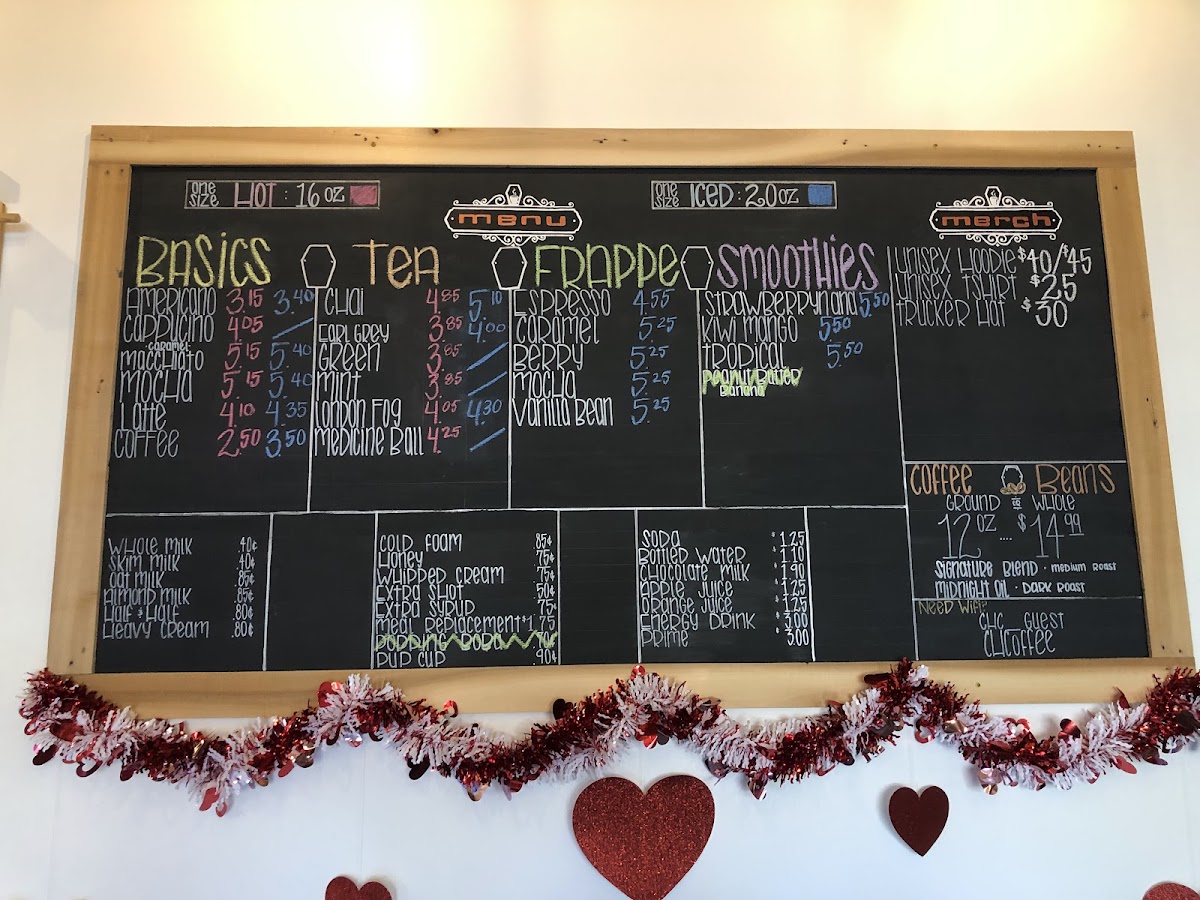 ONE SIZE HOT: 16 OZ
MENU
ONE SIZE ICED: 20 OZ
MERCH
BASICS
AMERICANO 3.15 3.40
CAPPUCINO 4.05
CARAMEL
MACCHIATO 5.15 5.40
MOCHA 5.15 5.40
LATTE 4.10 4.35
COFFEE 2.50 3.50
TEA
CHAI 4.85 5.10
EARL GREY 3.85 4.00
GREEN 3.85
MINT 3.85
LONDON FOG 4.05 4.30
MEDICINE BALL 4.25
FRAPPE
ESPRESSO 4.55
CARAMEL 5.25
BERRY 5.25
MOCHA 5.25
VANILLA BEAN 5.25
SMOOTHIES
STRAWBERRYNANA 5.50
KIWI MANGO 5.50
TROPICAL 5.50
PEANUT BUTTER
BANANA
UNISEX HOODIE $40/$45
UNISEX TSHIRT $25
TRUCKER HAT $30
COFFEE BEANS
GROUND OR WHOLE
12 OZ .... $14.99
SIGNATURE BLEND · MEDIUM ROAST
MIDNIGHT OIL · DARK ROAST
NEED WIFI?
CHC_GUEST
CHCOFFEE
WHOLE MILK .40¢
SKIM MILK .40¢
OAT MILK .85¢
ALMOND MILK .85¢
HALF & HALF .80¢
HEAVY CREAM .80¢
COLD FOAM .85¢
HONEY .75¢
WHIPPED CREAM .75¢
EXTRA SHOT .50¢
EXTRA SYRUP .75¢
MEAL REPLACEMENT $1.75
POPPING BOBA
PUP CUP .90¢
SODA $1.25
BOTTLED WATER $1.10
CHOCOLATE MILK $1.90
APPLE JUICE $1.25
ORANGE JUICE $1.25
ENERGY DRINK $3.00
PRIME $3.00